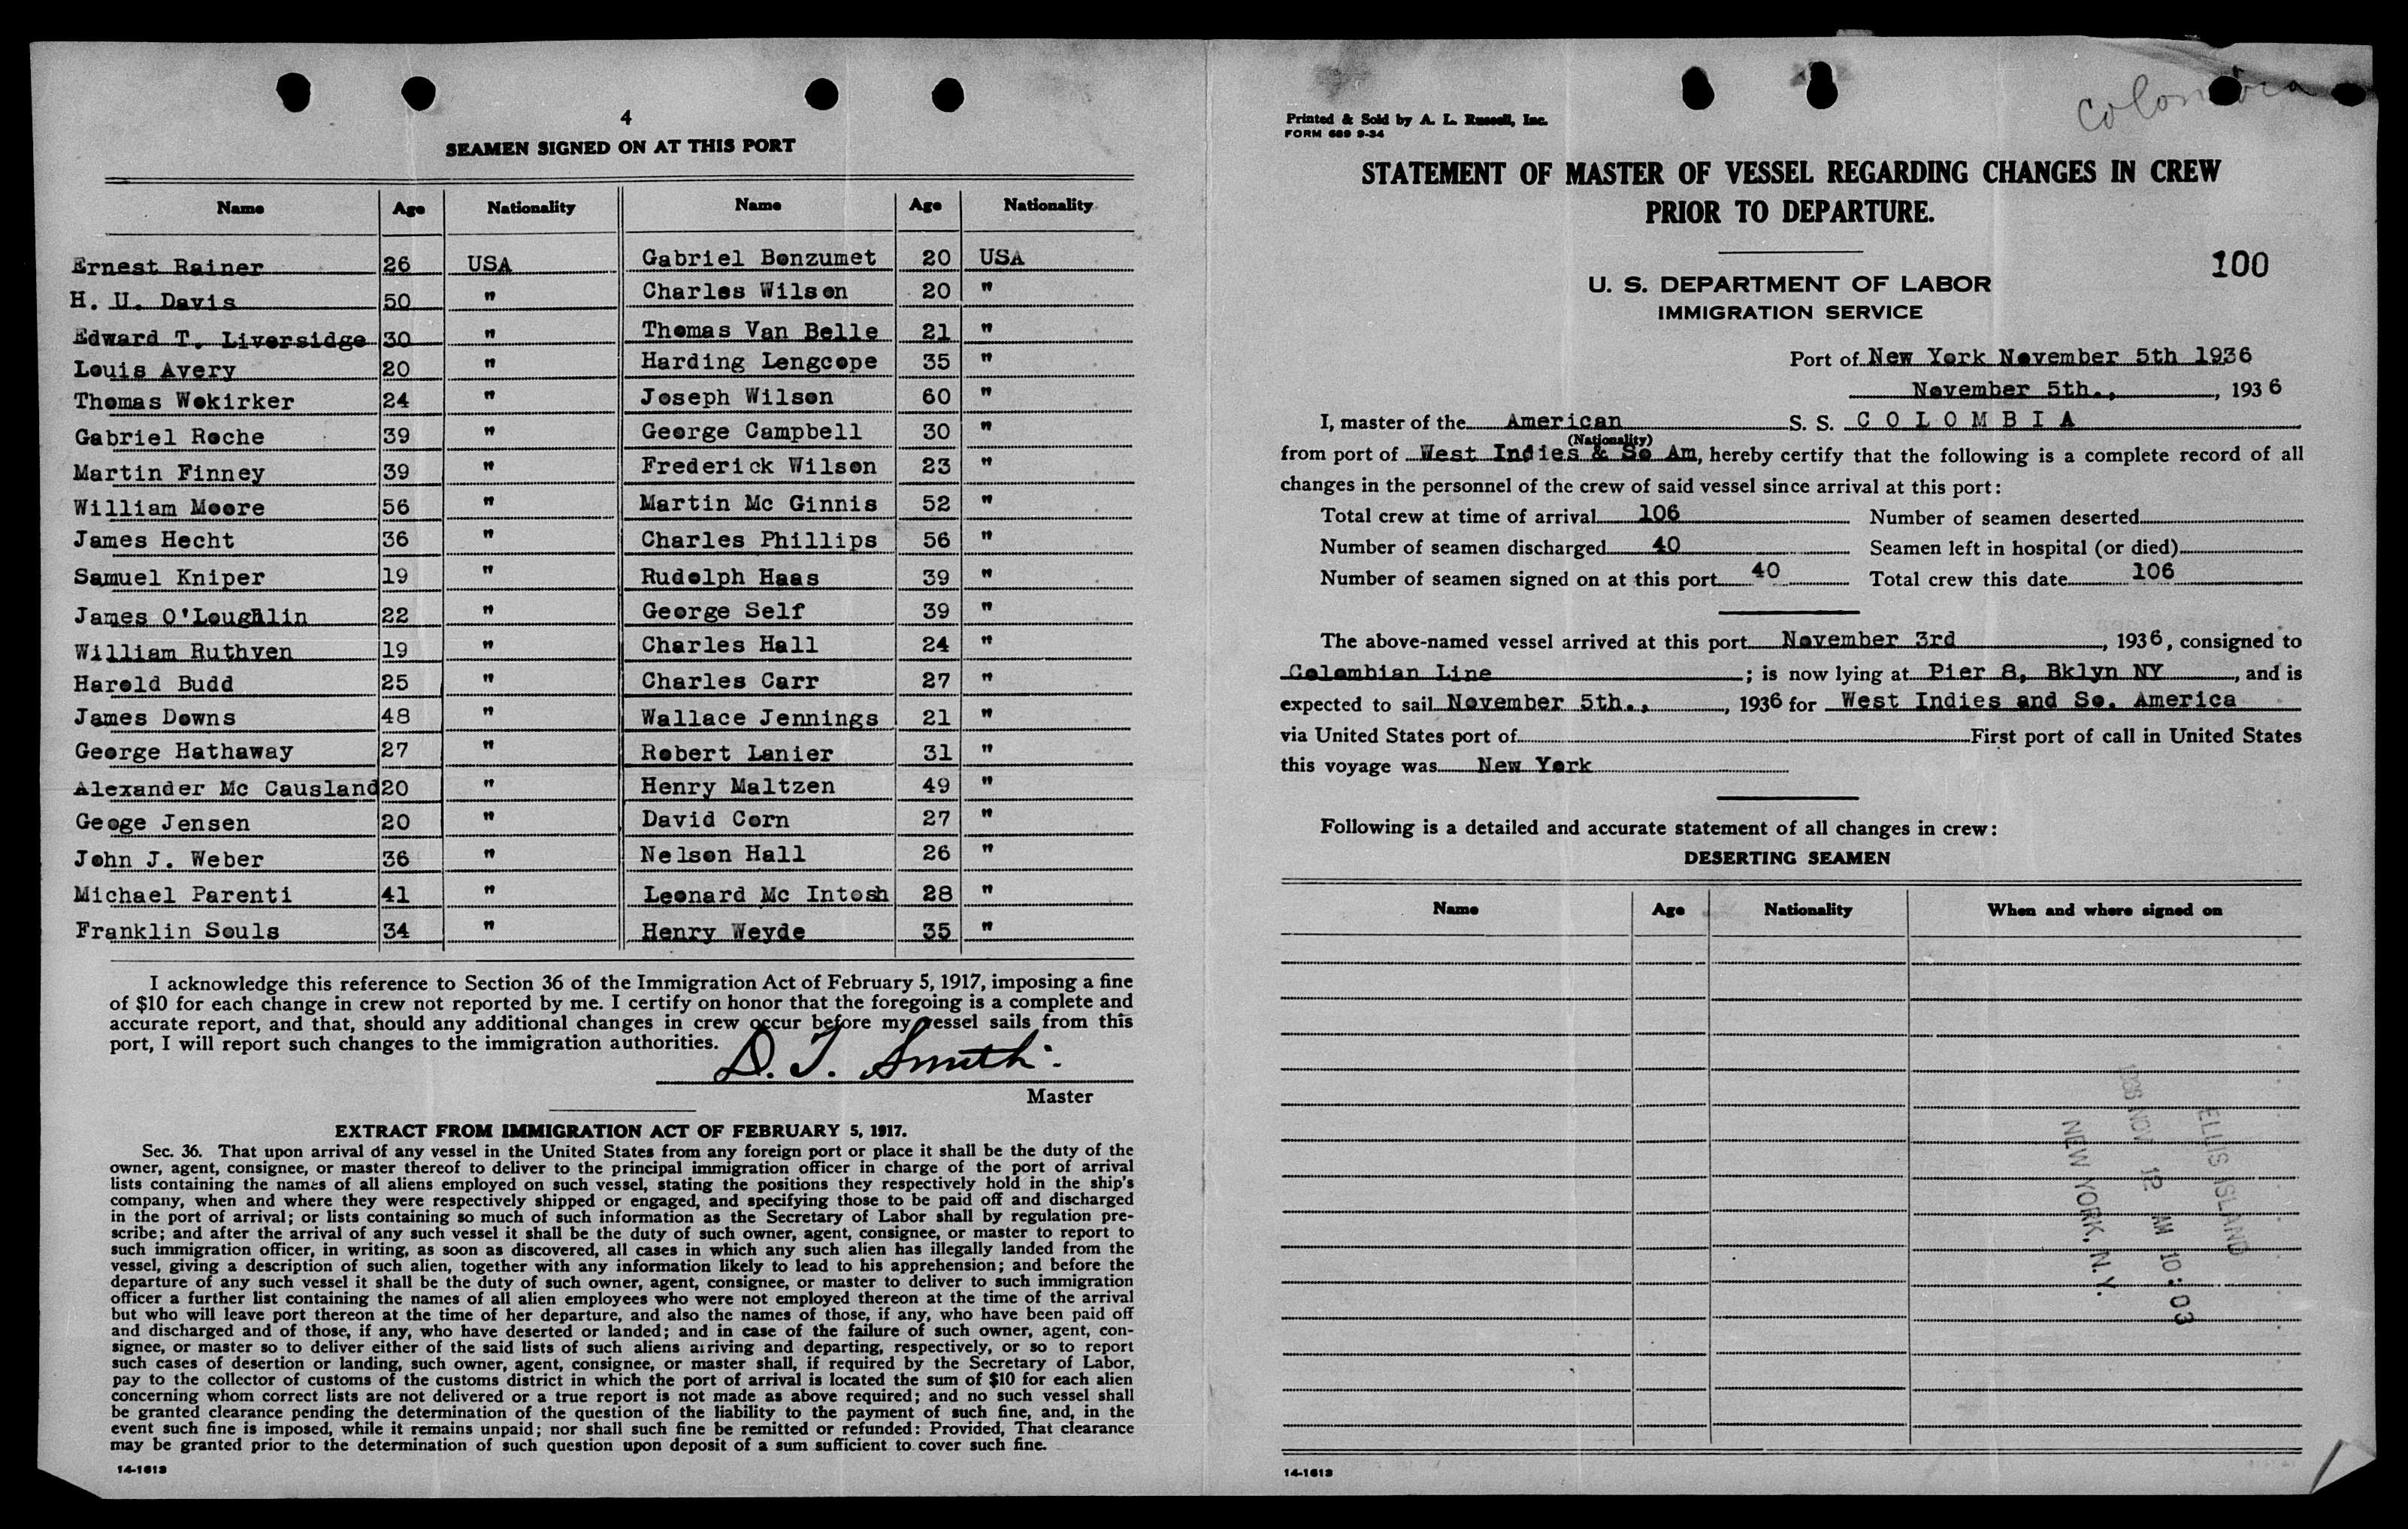 4
SEAMEN SIGNED ON AT THIS PORT
Name Age Nationality Name Age Nationality
Ernest Rainer 26 USA Gabriel Benzumet 20 USA
H. U. Davis 50 " Charles Wilson 20 "
Edward T. Liversidge 30 " Thomas Van Belle 21 "
Louis Avery 20 " Harding Lengcope 35 "
Thomas Wokirker 24 " Joseph Wilson 60 "
Gabriel Roche 39 " George Campbell 30 "
Martin Finney 39 " Frederick Wilson 23 "
William Moore 56 " Martin Mc Ginnis 52 "
James Hecht 36 " Charles Phillips 56 "
Samuel Kniper 19 " Rudolph Haas 39 "
James O'Loughlin 22 " George Self 39 "
William Ruthven 19 " Charles Hall 24 "
Harold Budd 25 " Charles Carr 27 "
James Downs 48 " Wallace Jennings 21 "
George Hathaway 27 " Robert Lanier 31 "
Alexander Mc Causland 20 " Henry Maltzen 49 "
Geoge Jensen 20 " David Corn 27 "
John J. Weber 36 " Nelson Hall 26 "
Michael Parenti 41 " Leonard Mc Intosh 28 "
Franklin Souls 34 " Henry Weyde 35 "
I acknowledge this reference to Section 36 of the Immigration Act of February 5, 1917, imposing a fine
of $10 for each change in crew not reported by me. I certify on honor that the foregoing is a complete and
accurate report, and that, should any additional changes in crew occur before my vessel sails from this
port, I will report such changes to the immigration authorities.
D. T. Smith
Master
EXTRACT FROM IMMIGRATION ACT OF FEBRUARY 5, 1917.
Sec. 36. That upon arrival of any vessel in the United States from any foreign port or place it shall be the duty of the
owner, agent, consignee, or master thereof to deliver to the principal immigration officer in charge of the port of arrival
lists containing the names of all aliens employed on such vessel, stating the positions they respectively hold in the ship's
company, when and where they were respectively shipped or engaged, and specifying those to be paid off and discharged
in the port of arrival; or lists containing so much of such information as the Secretary of Labor shall by regulation pre-
scribe; and after the arrival of any such vessel it shall be the duty of such owner, agent, consignee, or master to report to
such immigration officer, in writing, as soon as discovered, all cases in which any such alien has illegally landed from the
vessel, giving a description of such alien, together with any information likely to lead to his apprehension; and before the
departure of any such vessel it shall be the duty of such owner, agent, consignee, or master to deliver to such immigration
officer a further list containing the names of all alien employees who were not employed thereon at the time of the arrival
but who will leave port thereon at the time of her departure, and also the names of those, if any, who have been paid off
and discharged and of those, if any, who have deserted or landed; and in case of the failure of such owner, agent, con-
signee, or master so to deliver either of the said lists of such aliens arriving and departing, respectively, or so to report
such cases of desertion or landing, such owner, agent, consignee, or master shall, if required by the Secretary of Labor,
pay to the collector of customs of the customs district in which the port of arrival is located the sum of $10 for each alien
concerning whom correct lists are not delivered or a true report is not made as above required; and no such vessel shall
be granted clearance pending the determination of the question of the liability to the payment of such fine, and, in the
event such fine is imposed, while it remains unpaid; nor shall such fine be remitted or refunded: Provided, That clearance
may be granted prior to the determination of such question upon deposit of a sum sufficient to cover such fine.
14-1613
Colombia
Printed & Sold by A. L. Russell, Inc.
FORM 689 9-34
STATEMENT OF MASTER OF VESSEL REGARDING CHANGES IN CREW
PRIOR TO DEPARTURE.
100
U. S. DEPARTMENT OF LABOR
IMMIGRATION SERVICE
Port of New York November 5th 1936
November 5th., , 1936
I, master of the American S. S. COLOMBIA
(Nationality)
from port of West Indies & So Am, hereby certify that the following is a complete record of all
changes in the personnel of the crew of said vessel since arrival at this port:
Total crew at time of arrival 106 Number of seamen deserted
Number of seamen discharged 40 Seamen left in hospital (or died)
Number of seamen signed on at this port 40 Total crew this date 106
The above-named vessel arrived at this port November 3rd , 1936, consigned to
Colombian Line ; is now lying at Pier 8, Bklyn NY , and is
expected to sail November 5th., , 1936 for West Indies and So. America
via United States port of First port of call in United States
this voyage was New York
Following is a detailed and accurate statement of all changes in crew:
DESERTING SEAMEN
Name Age Nationality When and where signed on
ELLIS ISLAND
1936 NOV 12 AM 10:03
NEW YORK, N.Y.
14-1613